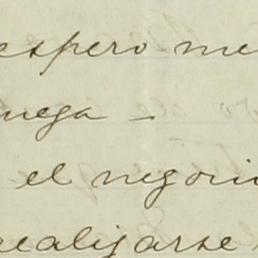 espero me
nuega —
el negoci
realizarse